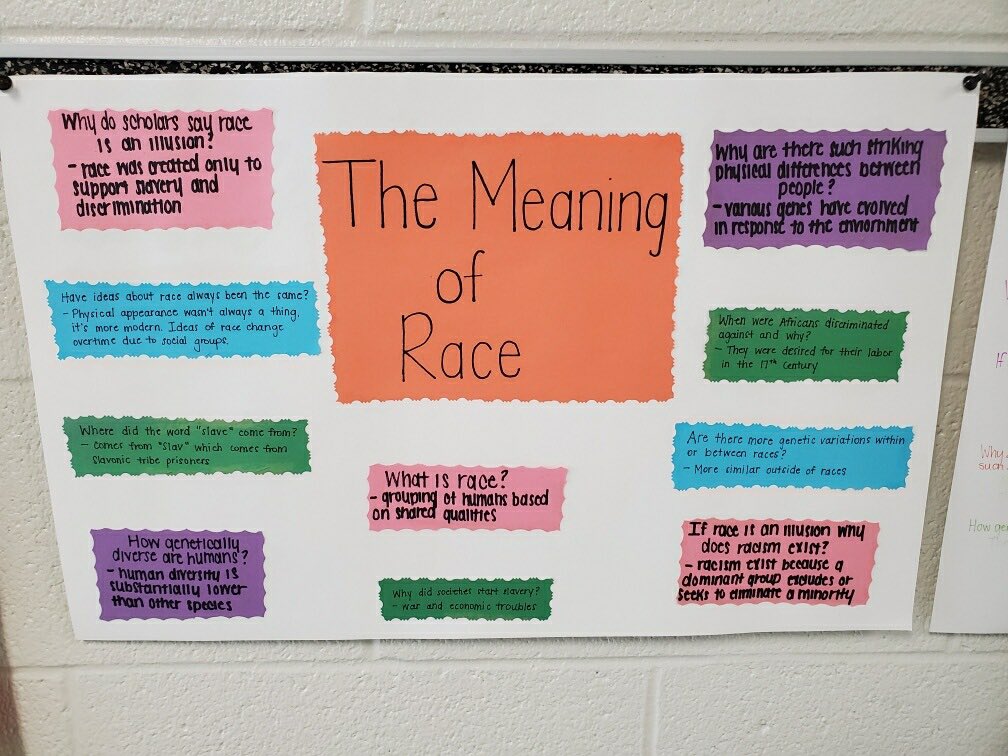 Why do scholars say race
is an illusion?
- race was created only to
support slavery and
discrimination
Have ideas about race always been the same?
- Physical appearance wasn't always a thing,
it's more modern. Ideas of race change
overtime due to social groups.
Where did the word "slave" come from?
- Comes from "Slav" which comes from
Slavonic tribe prisoners
How genetically
diverse are humans?
- human diversity is
substantially lower
than other species
The Meaning
of
Race
What is race?
- grouping of humans based
on shared qualities
Why did societies start slavery?
- war and economic troubles
Why are there such striking
physical differences between
people?
- various genes have evolved
in response to the enviornment
When were Africans discriminated
against and why?
- They were desired for their labor
in the 17th Century
Are there more genetic variations within
or between races?
- More similar outside of races
If race is an illusion why
does racism exist?
- racism exist because a
dominant group excludes or
seeks to eliminate a minority
If
Why
such
How